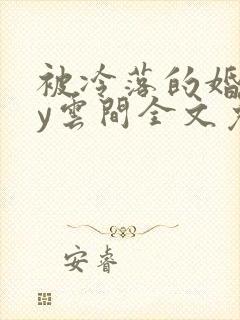 被冷落的婚
y雲間全文
安睿